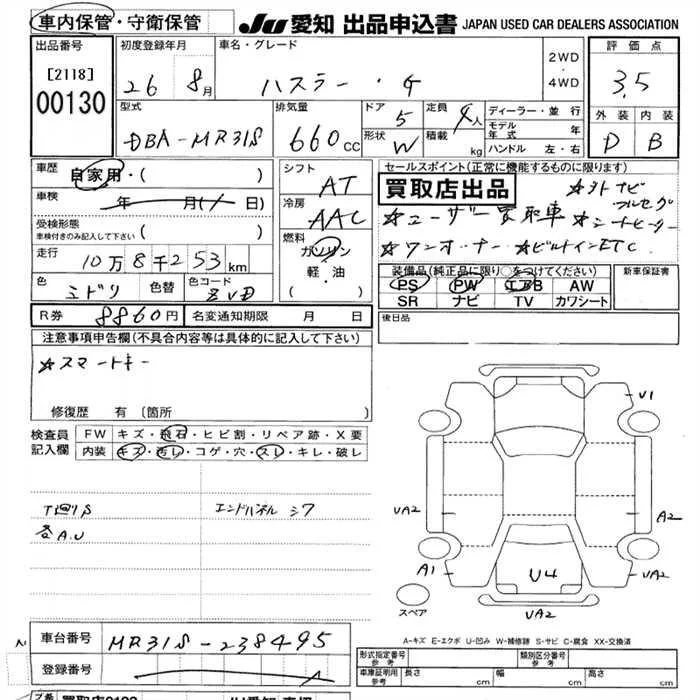 車内保管・守衛保管 JU 愛知 出品申込書 JAPAN USED CAR DEALERS ASSOCIATION
出品番号 [2118] 00130
初度登録年月 26 8月
車名・グレード ハスラー・G
2WD・4WD
評価点 3.5
外装 D 内装 B
型式 DBA-MR31S
排気量 660cc
ドア 5 形状 W
定員 4人 積載 kg
ディーラー・並行
モデル年式 年
ハンドル 左・右
車歴 自家用・( )
車検 年 月(/ 日)
受検形態 車検付きのみ記入して下さい ( )
走行 10万8千253km
色 ミドリ 色替 色コード ZVD
シフト AT
冷房 AAC
燃料 ガソリン 軽・油
セールスポイント(正常に機能するものに限ります)
買取店出品 ☆外ナビ フルセグ
☆ユーザー買取車 ☆シートヒーター
☆ワンオーナー ☆ビルトインETC
装備品(純正品に限り○をつけてください)
PS PW エアB AW
SR ナビ TV カワシート
新車保証書
R券 8860円 名変通知期限 月 日
後日品
注意事項申告欄(不具合内容等は具体的に記入して下さい)
☆スマートキー
修復歴 有 (箇所 )
検査員記入欄
FW キズ・飛石・ヒビ割・リペア跡・X要
内装 キズ・汚レ・コゲ・穴・スレ・キレ・破レ
T廻りS エンドパネルシワ
各A.U
U1
UA2 A2
A1 U4 UA2
スペア UA2
A-キズ E-エクボ U-凹み W-補修跡 S-サビ C-腐食 XX-交換済
車台番号 MR31S-238495
登録番号
形式指定番号 参考 類別区分番号 参考
車庫証明用 参考 長さ cm 幅 cm 高さ cm